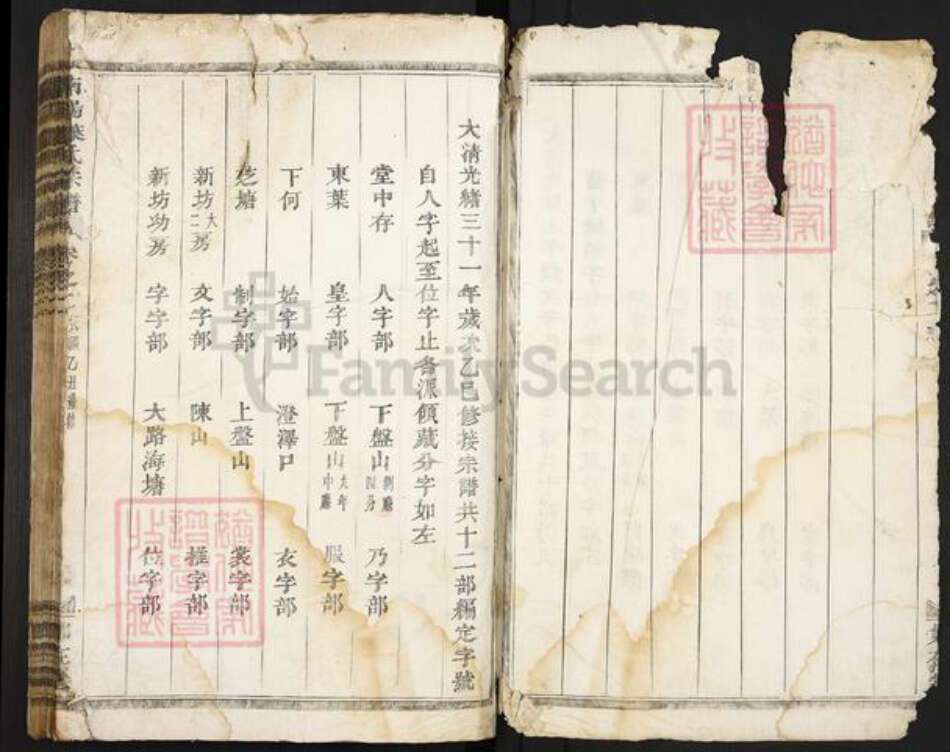 大清光緒三十一年歲次乙巳修接宗譜共十二部編定字號
自人字起至位字止各派領藏分字如左
堂中存 人字部 下盤山 四分 乃字部
東葉 皇字部 下盤山 大年 中廳 服字部
下何 始字部 澄澤口 衣字部
芝塘 制字部 上盤山 裳字部
新坊 大二 房 文字部 陳山 推字部
新坊幼房 字字部 大路海塘 位字部
FamilySearch